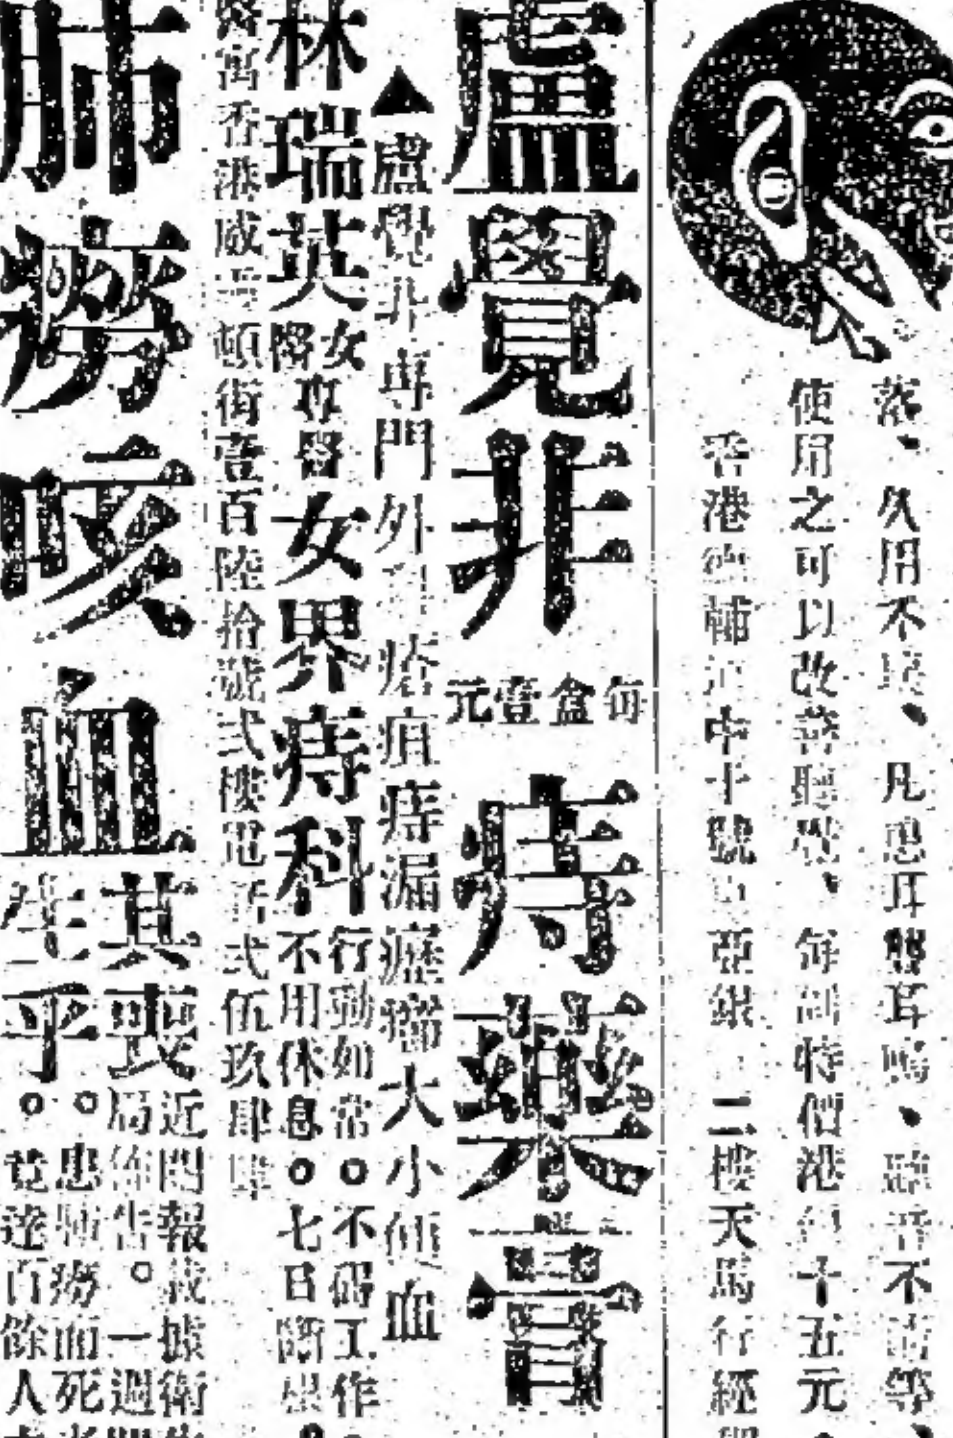 落、久用不壞、凡患耳聾耳鳴、聽音不清等、
使用之可以改善聽覺、每副特價港紙十五元。
香港德輔道中十號東亞銀行二樓天馬行經理
盧覺非
每盒壹元
痔藥膏
▲盧覺非專門外科瘡疽痔漏瘰癧大小便血
林瑞英女醫專醫女界痔科
行動如常。不碍工作。
不用休息。七日斷根。
寓香港威靈頓街壹百陸拾號弍樓電話弍伍玖肆肆
肺癆咳血
其喪生乎。
近閱報載據衛
局佈告。一週
患肺癆而死
竟達百餘人